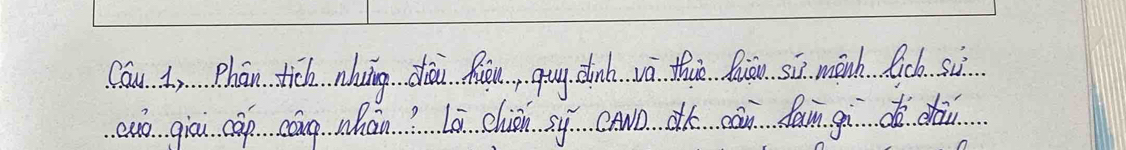 Câu 1, Phân tích những điều kiện, quy định và thực hiện sứ mệnh lịch sử
của giai cấp công nhân? Là chiến sỹ CAND đ/c cần làm gì để đấu